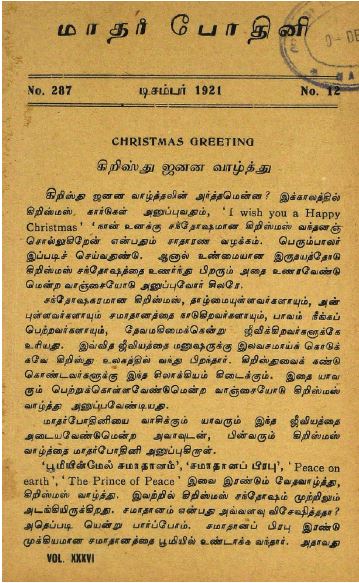 மாதர் போதினி
No. 287 டிசம்பர் 1921 No. 12
CHRISTMAS GREETING
கிறிஸ்து ஜனன வாழ்த்து
கிறிஸ்து ஜனன வாழ்த்தலின் அர்த்தமென்ன? இக்காலத்தில்
கிறிஸ்மஸ் கார்டுகள் அனுப்புவதும், 'I wish you a Happy
Christmas' 'நான் உனக்கு சந்தோஷமான கிறிஸ்மஸ் வந்தனஞ்
சொல்லுகிறேன்' என்பதும் சாதாரண வழக்கம். பெரும்பாலர்
இப்படிச் செய்வதுண்டு. ஆனால் உண்மையான இருதயத்தோடு
கிறிஸ்மஸ் சந்தோஷத்தை உணர்ந்து பிறரும் அதை உணரவேண்டு
மென்ற வாஞ்சையோடு அனுப்புவோர் சிலரே.
சந்தோஷகரமான கிறிஸ்மஸ், தாழ்மையுள்ளவர்களாயும், அன்
புள்ளவர்களாயும் சமாதானத்தை நாடுகிறவர்களாயும், பாவம் நீங்கப்
பெற்றவர்களாயும், தேவமகிமைக்கென்று ஜீவிக்கிறவர்களுக்கே
உரியது. இவ்வித ஜீவியத்தை மனுஷருக்கு இலவசமாய்க் கொடுக்
கவே கிறிஸ்து உலகத்தில் வந்து பிறந்தார். கிறிஸ்துவைக் கண்டு
கொண்டவர்களுக்கு இந்த சிலாக்கியம் கிடைக்கும். இதை யாவ
ரும் பெற்றுக்கொள்ளவேண்டுமென்ற வாஞ்சையோடு கிறிஸ்மஸ்
வாழ்த்து அனுப்பவேண்டியது.
மாதர்போதினியை வாசிக்கும் யாவரும் இந்த ஜீவியத்தை
அடையவேண்டுமென்ற அவாவுடன், பின்வரும் கிறிஸ்மஸ்
வாழ்த்தை மாதர்போதினி அனுப்புகிறாள்.
'பூமியின்மேல் சமாதானம்', 'சமாதானப் பிரபு', 'Peace on
earth', 'The Prince of Peace' இவை இரண்டும் வேதவாழ்த்து,
கிறிஸ்மஸ் வாழ்த்து. இவற்றில் கிறிஸ்மஸ் சந்தோஷம் முற்றிலும்
அடங்கியிருக்கிறது. சமாதானம் என்பது அவ்வளவு விசேஷித்ததா?
அதெப்படி யென்று பார்ப்போம். சமாதானப் பிரபு இரண்டு
முக்கியமான சமாதானத்தை பூமியில் உண்டாக்க வந்தார். அதாவது
VOL. XXXVI